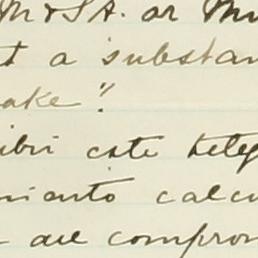 M&SA. or
t a substan
ake".
ibir este teleg
miento calcu
are compron